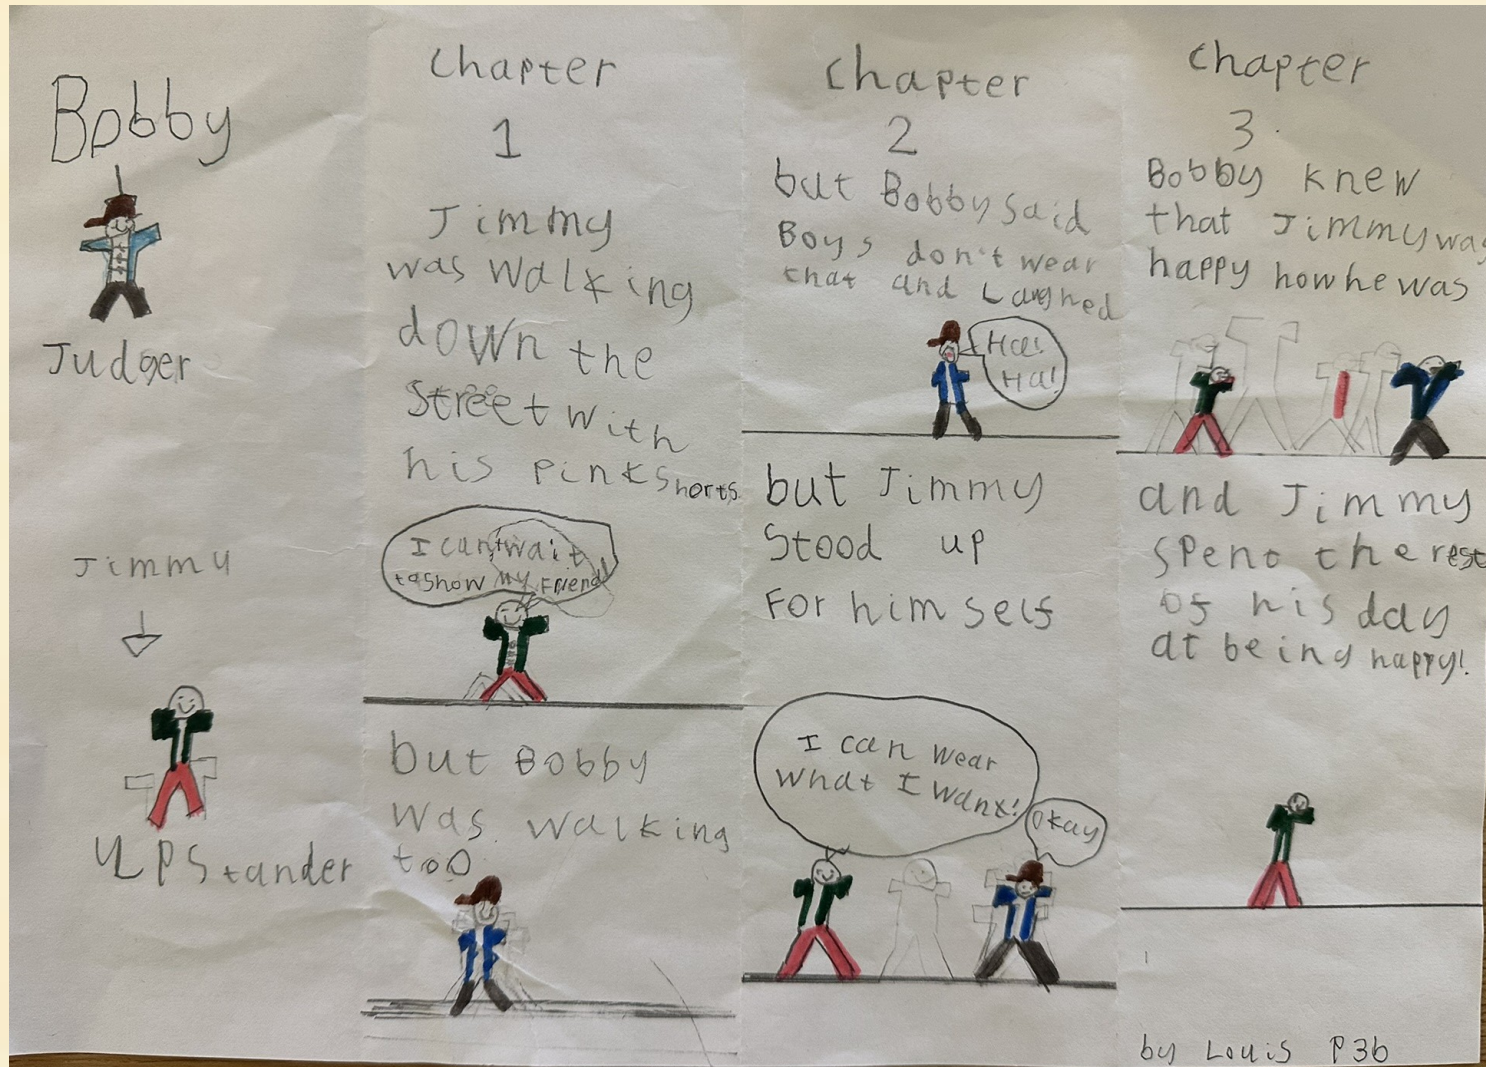 Bobby
Judger
Jimmy
UPStander
Chapter
1
Jimmy
was walking
down the
Street with
his pink shorts
I can't wait
to show my Friend!
but Bobby
was walking
too
Chapter
2
but Bobby said
Boys don't wear
that and Laughed
Ha!
Ha!
but Jimmy
Stood up
For him self
I can wear
what I want!
Okay
Chapter
3
Bobby knew
that Jimmy was
happy how he was
and Jimmy
spent the rest
of his day
at being happy!
by Louis P3b